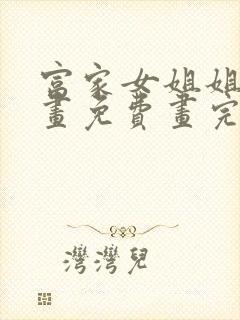 富家女姐姐
畫免費畫完
灣灣兒